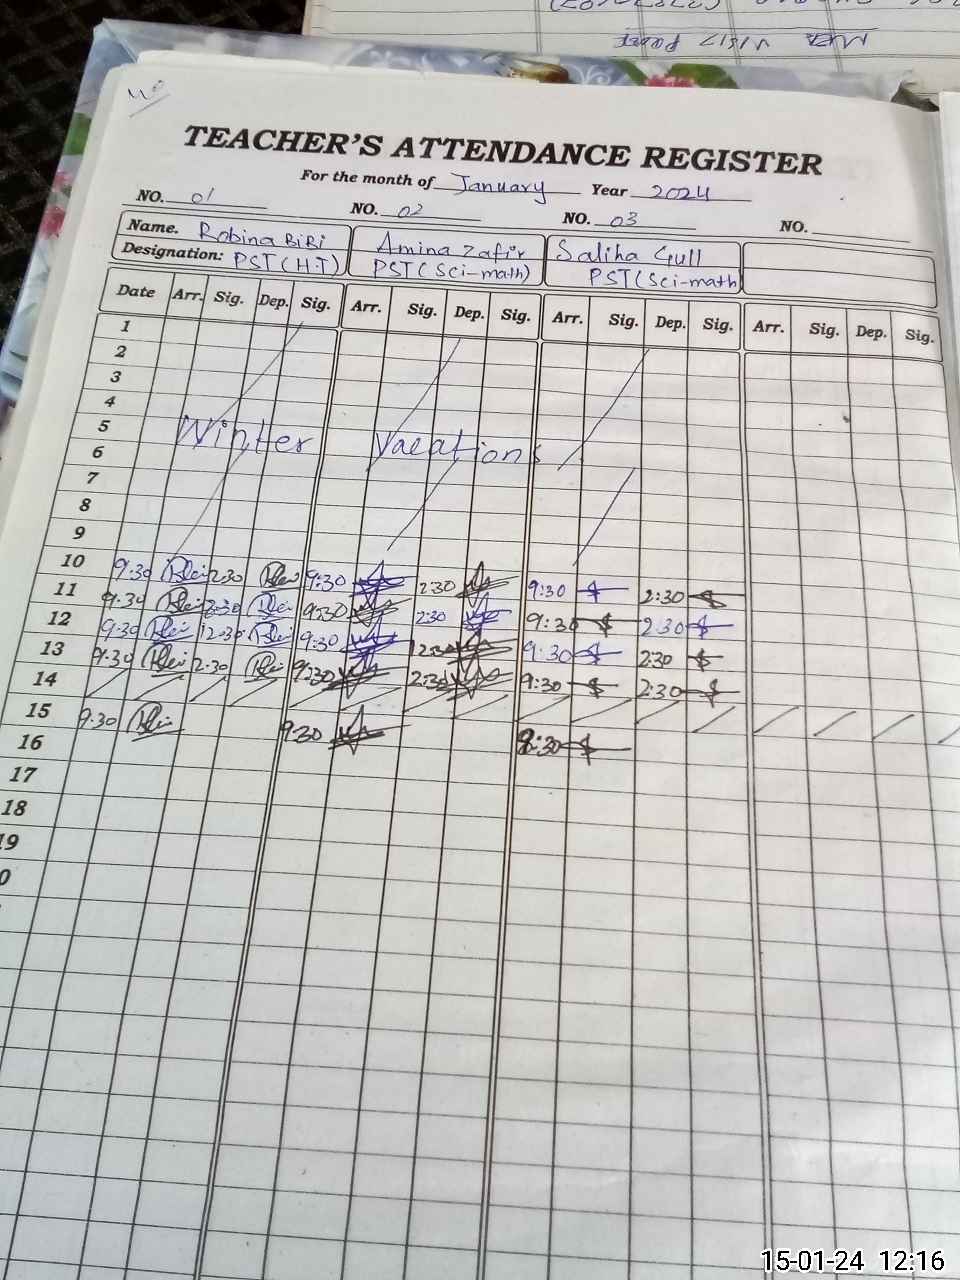 MEA VISIT PROOF
TEACHER'S ATTENDANCE REGISTER
For the month of January Year 2024
NO. 01 NO. 02 NO. 03 NO.
Name. Robina BiBi Amina Zafir Saliha Gull
Designation: PST(H.T) PST(Sci-math) PST(Sci-math)
Date Arr. Sig. Dep. Sig. Arr. Sig. Dep. Sig. Arr. Sig. Dep. Sig. Arr. Sig. Dep. Sig.
1
2
3
4
5
Winter Vacations
6
7
8
9
10 9:30 2:30 9:30 2:30 9:30 2:30
11 9:30 2:30 9:30 2:30 9:30 2:30
12 9:30 2:30 9:30 2:30 9:30 2:30
13 9:30 2:30 9:30 2:30 9:30 2:30
14
15 9:30 9:30 8:30
16
17
18
19
0
15-01-24 12:16